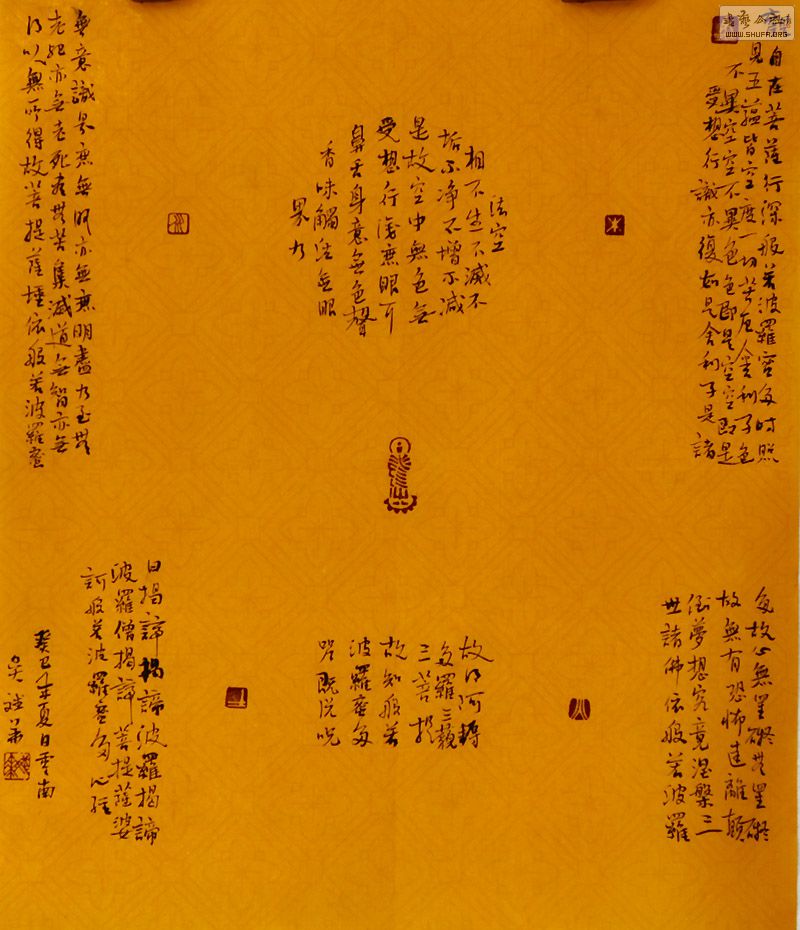 觀
自在菩薩行深般若波羅密多時照
見五蘊皆空度一切苦厄舍利子色
不異空空不異色色即是空空即是
受想行識亦復如是舍利子是諸
法空
相不生不滅不
垢不净不增不减
是故空中無色無
受想行識無眼耳
鼻舌身意無色聲
香味觸法無眼
界乃
無意識界無無明亦無無明盡乃至無
老死亦無老死盡無苦集滅道無智亦無
得以無所得故菩提薩埵依般若波羅蜜
多故心無罣礙無罣礙
故無有恐怖遠離顛
倒夢想究竟涅槃三
世諸佛依般若波羅
故得阿耨
多羅三藐
三菩提
故知般若
波羅蜜多
咒既說咒
曰揭諦揭諦波羅揭諦
波羅僧揭諦菩提薩婆
訶般若波羅蜜多心經
癸巳年夏日雲南
WWW.SHUFA.ORG